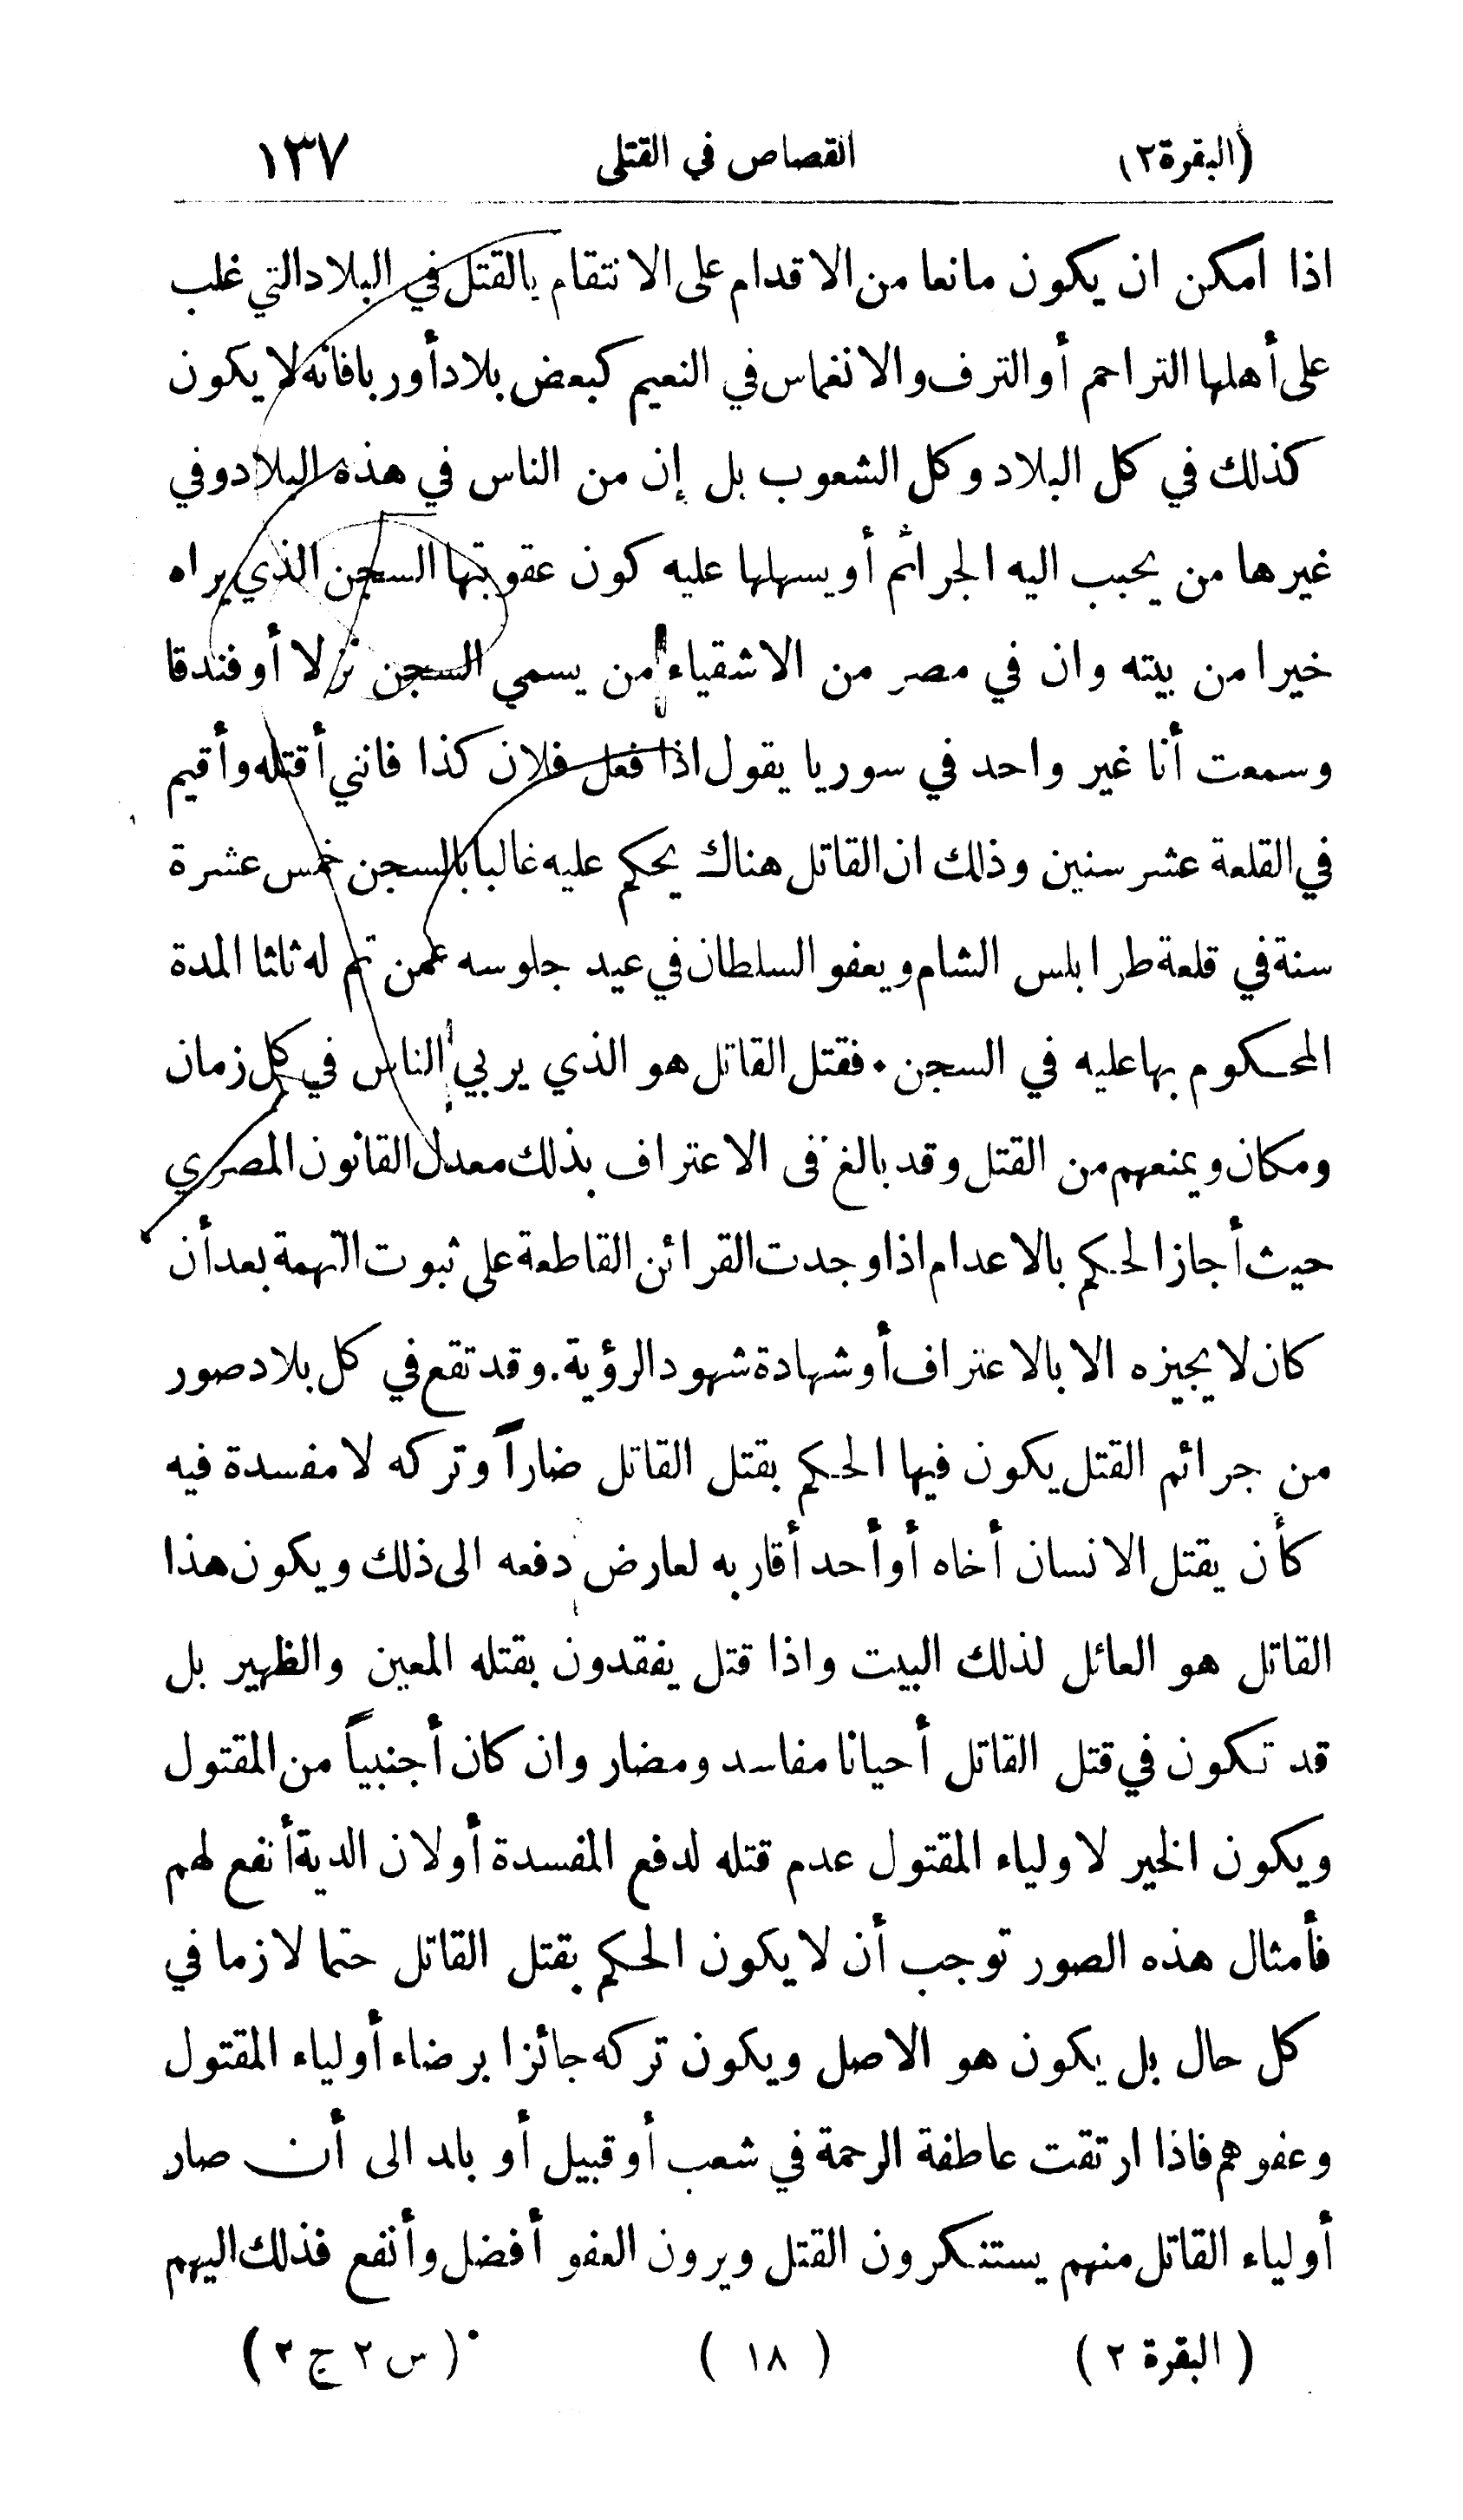 (البقرة ٢) القصاص في القتلى ١٣٧
اذا امكن ان يكون مانعا من الاقدام على الانتقام بالقتل في البلاد التي غلب
على أهلها التراحم أو الترف والانغماس في النعيم كبعض بلاد أوربا فانه لا يكون
كذلك في كل البلاد وكل الشعوب بل إن من الناس في هذه البلاد وفي
غيرها من يحبب اليه الجرائم أو يسهلها عليه كون عقوبتها السجن الذي يراه
خيرا من بيته وان في مصر من الاشقياء من يسمي السجن نزلا أو فندقا
وسمعت أنا غير واحد في سوريا يقول اذا فعل فلان كذا فانني أقتله وأقيم
في القلعة عشر سنين وذلك ان القاتل هناك يحكم عليه غالبا بالسجن خمس عشرة
سنة في قلعة طرابلس الشام ويعفو السلطان في عيد جلوسه عمن تم له ثلثا المدة
المحكوم بها عليه في السجن. فقتل القاتل هو الذي يربي الناس في كل زمان
ومكان ويمنعهم من القتل وقد بالغ في الاعتراف بذلك معدل القانون المصري
حيث أجاز الحكم بالاعدام اذا وجدت القرائن القاطعة على ثبوت التهمة بعد أن
كان لا يجيزه الا بالاعتراف أو شهادة شهود الرؤية. وقد تقع في كل بلاد صور
من جرائم القتل يكون فيها الحكم بقتل القاتل ضاراً وتركه لا مفسدة فيه
كأن يقتل الانسان أخاه أو أحد أقاربه لعارض دفعه الى ذلك ويكون هذا
القاتل هو العائل لذلك البيت واذا قتل يفقدون بقتله المعين والظهير بل
قد تكون في قتل القاتل أحيانا مفاسد ومضار وان كان أجنبياً من المقتول
ويكون الخير لاولياء المقتول عدم قتله لدفع المفسدة أو لان الدية أنفع لهم
فأمثال هذه الصور توجب أن لا يكون الحكم بقتل القاتل حتما لازما في
كل حال بل يكون هو الاصل ويكون تركه جائزا برضاء أولياء المقتول
وعفوهم فاذا ارتقت عاطفة الرحمة في شعب أو قبيل أو بلد الى أن صار
أولياء القاتل منهم يستنكرون القتل ويرون العفو أفضل وأنفع فذلك اليهم
(البقرة ٢) (١٨) (س ٢ ج ٢)